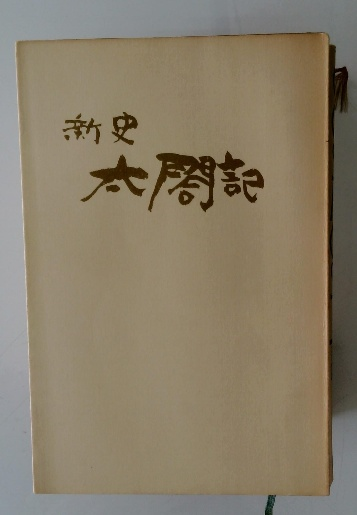 新史
太閤記